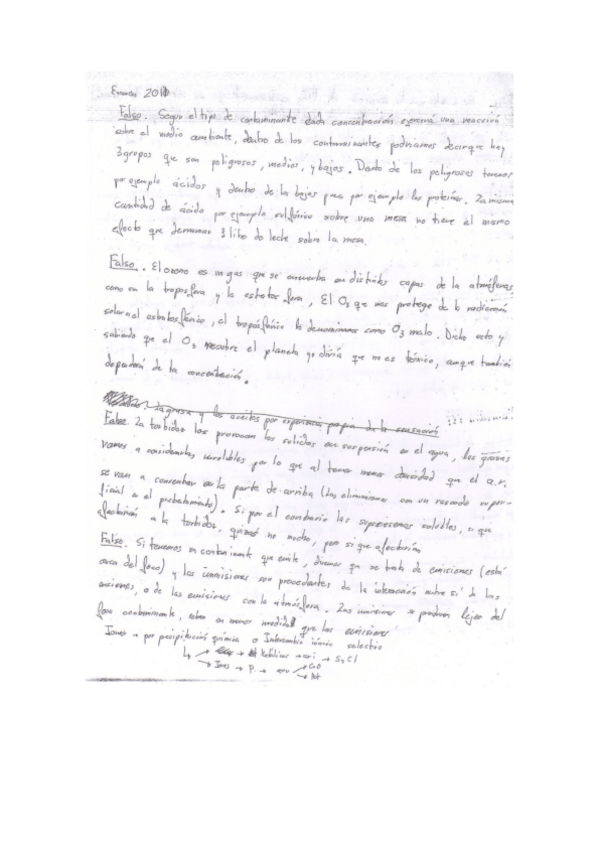 Examen 2010
Falso. Según el tipo de contaminante cada concentración ejercerá una reacción
sobre el medio ambiente, dentro de los contaminantes podríamos decir que hay
3 grupos que son peligrosos, medios, y bajos. Dentro de los peligrosos tenemos
por ejemplo ácidos y dentro de los bajos pues por ejemplo las proteínas. La misma
cantidad de ácido por ejemplo sulfúrico sobre una mesa no tiene el mismo
efecto que derramar 3 litros de leche sobre la mesa.
Falso. El ozono es un gas que se encuentra en distintas capas de la atmósfera
como en la troposfera y la estratosfera, El O3 que nos protege de la radiación
solar es el estratosférico, el troposférico lo denominamos como O3 malo. Dicho esto y
sabiendo que el O3 recubre el planeta yo diría que no es tóxico, aunque también
dependerá de la concentración.
la grasa y los aceites por experiencia propia de la
Falso. La turbidez las provocan los sólidos en suspensión en el agua, las grasas
vamos a considerarlas insolubles por lo que al tener menor densidad que el a.r.
se van a concentrar en la parte de arriba (las eliminamos con un rascado super-
ficial en el pretratamiento). Si por el contrario las suponemos solubles, si que
afectarían a la turbidez, quizás no mucho, pero si que afectarían
Falso. Si tenemos un contaminante que emite, diremos que se trata de emisiones (está
cerca del foco) y las inmisiones son procedentes de la interacción entre si de las
emisiones, o de las emisiones con la atmósfera. Las inmisiones se producen lejos del
foco contaminante, en menor medida que las emisiones
Iones → por precipitación química o Intercambio iónico selectivo
→ Iones → P →